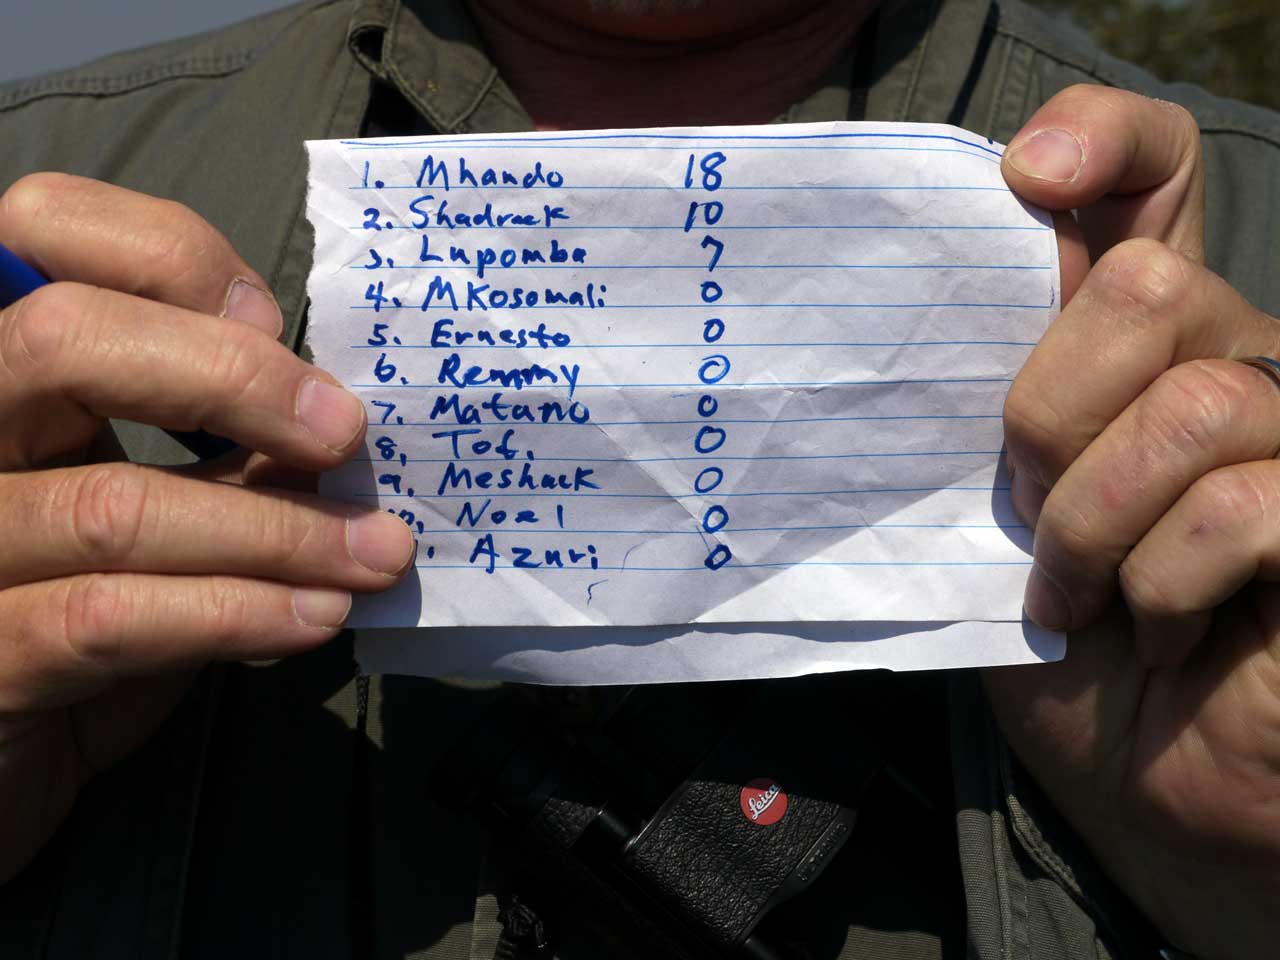 1. Mhando 18
2. Shadrack 10
3. Lupomba 7
4. MKosomali 0
5. Ernesto 0
6. Remmy 0
7. Matano 0
8, Tof. 0
9. Meshack 0
10, Noel 0
. Azuri 0
Leica